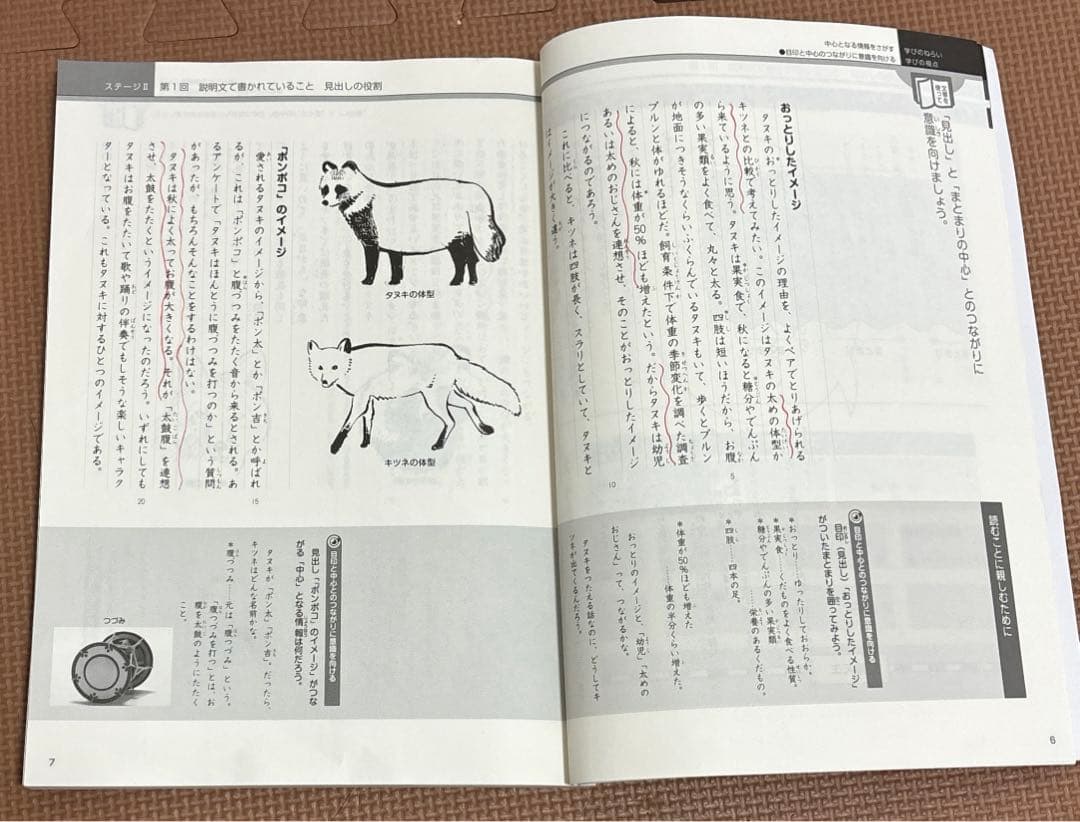 学びのねらい
中心となる情報をさがす
学びの視点
●目印と中心のつながりに意識を向ける
文章を使って
「見出し」と「まとまりの中心」とのつながりに
意識を向けましょう。
おっとりしたイメージ
タヌキのおっとりしたイメージの理由を、よくペアでとりあげられる
キツネとの比較で考えてみたい。このイメージはタヌキの太めの体型か
ら来ているように思う。タヌキは果実食で、秋になると糖分やでんぷん
の多い果実類をよく食べて、丸々と太る。四肢は短いほうだから、お腹
が地面につきそうなくらいふくらんでいるタヌキもいて、歩くとブルン
ブルンと体がゆれるほどだ。飼育条件下で体重の季節変化を調べた調査
によると、秋には体重が50％ほども増えたという。だからタヌキは幼児
あるいは太めのおじさんを連想させ、そのことがおっとりしたイメージ
につながるのであろう。
これに比べると、キツネは四肢が長く、スラリとしていて、タヌキと
はイメージが大きく違う。
5
10
読むことに親しむために
目印と中心とのつながりに意識を向ける
目印（見出し）「おっとりしたイメージ」
がついたまとまりを囲ってみよう。
＊おっとり……ゆったりしておおらか。
＊果実食……くだものをよく食べる性質。
＊糖分やでんぷんの多い果実類
……栄養のあるくだもの。
＊四肢……四本の足。
＊体重が50％ほども増えた
……体重の半分くらい増えた。
おっとりのイメージと、「幼児」「太めの
おじさん」って、つながるかな。
タヌキをつたえる話なのに、どうしてキ
ツネが出てくるんだろう。
6
ステージⅡ 第1回 説明文で書かれていること 見出しの役割
タヌキの体型
キツネの体型
「ポンポコ」のイメージ
愛されるタヌキのイメージから、「ポン太」とか「ポン吉」とか呼ばれ
るが、これは「ポンポコ」と腹づつみをたたく音から来るとされる。あ
るアンケートで「タヌキはほんとうに腹づつみを打つのか」という質問
があったが、もちろんそんなことをするわけはない。
タヌキは秋によく太ってお腹が大きくなる。それが「太鼓腹」を連想
させ、太鼓をたたくというイメージになったのだろう。いずれにしても
タヌキはお腹をたたいて歌や踊りの伴奏でもしそうな楽しいキャラク
ターとなっている。これもタヌキに対するひとつのイメージである。
15
20
目印と中心とのつながりに意識を向ける
見出し「ポンポコ」のイメージ」がつな
がる「中心」となる情報は何だろう。
タヌキが「ポン太」「ポン吉」だったら、
キツネはどんな名前かな。
＊腹づつみ……元は「腹つづみ」という。
「腹つづみを打つ」とは、お
腹を太鼓のようにたたく
こと。
つづみ
7